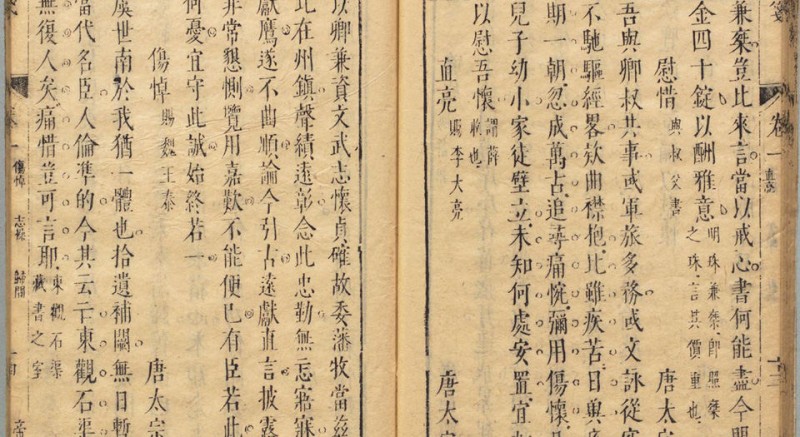 兼乘豈此來言當以戒心書何能盡今明
金四十錠以酬雅意 明珠兼乘即照乘
之珠言其價重也
慰惜 與叔父書 唐太
吾與卿叔共事或軍旅多務或文詠從
不馳驅經畧欵曲襟抱比雖疾苦日輿
期一朝忽成萬古追尋痛惋彌用傷懷
兒子幼小家徒壁立未知何處安置宜
以慰吾懷 謂薛
收也
直亮 賜李大亮 唐太宗
以卿兼資文武志懷貞確故委藩牧當茲
比在州鎮聲績遠彰念此忠勤無忘寤寐
獻鷹遂不曲順論今引古遠獻直言披露
非常懇惻覽用嘉歎不能便已有臣若此
何憂宜守此誠始終若一
傷悼 賜魏王泰 唐太宗
虞世南於我猶一體也拾遺補闕無日暫
當代名臣人倫準的今其云亡東觀石渠
無復人矣痛惜豈可言耶 東觀石渠
藏書之室
卷一 傷悼